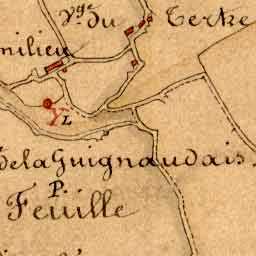 Vge du Terke
milieu
L
De la Guignaudais
P.
Feuille